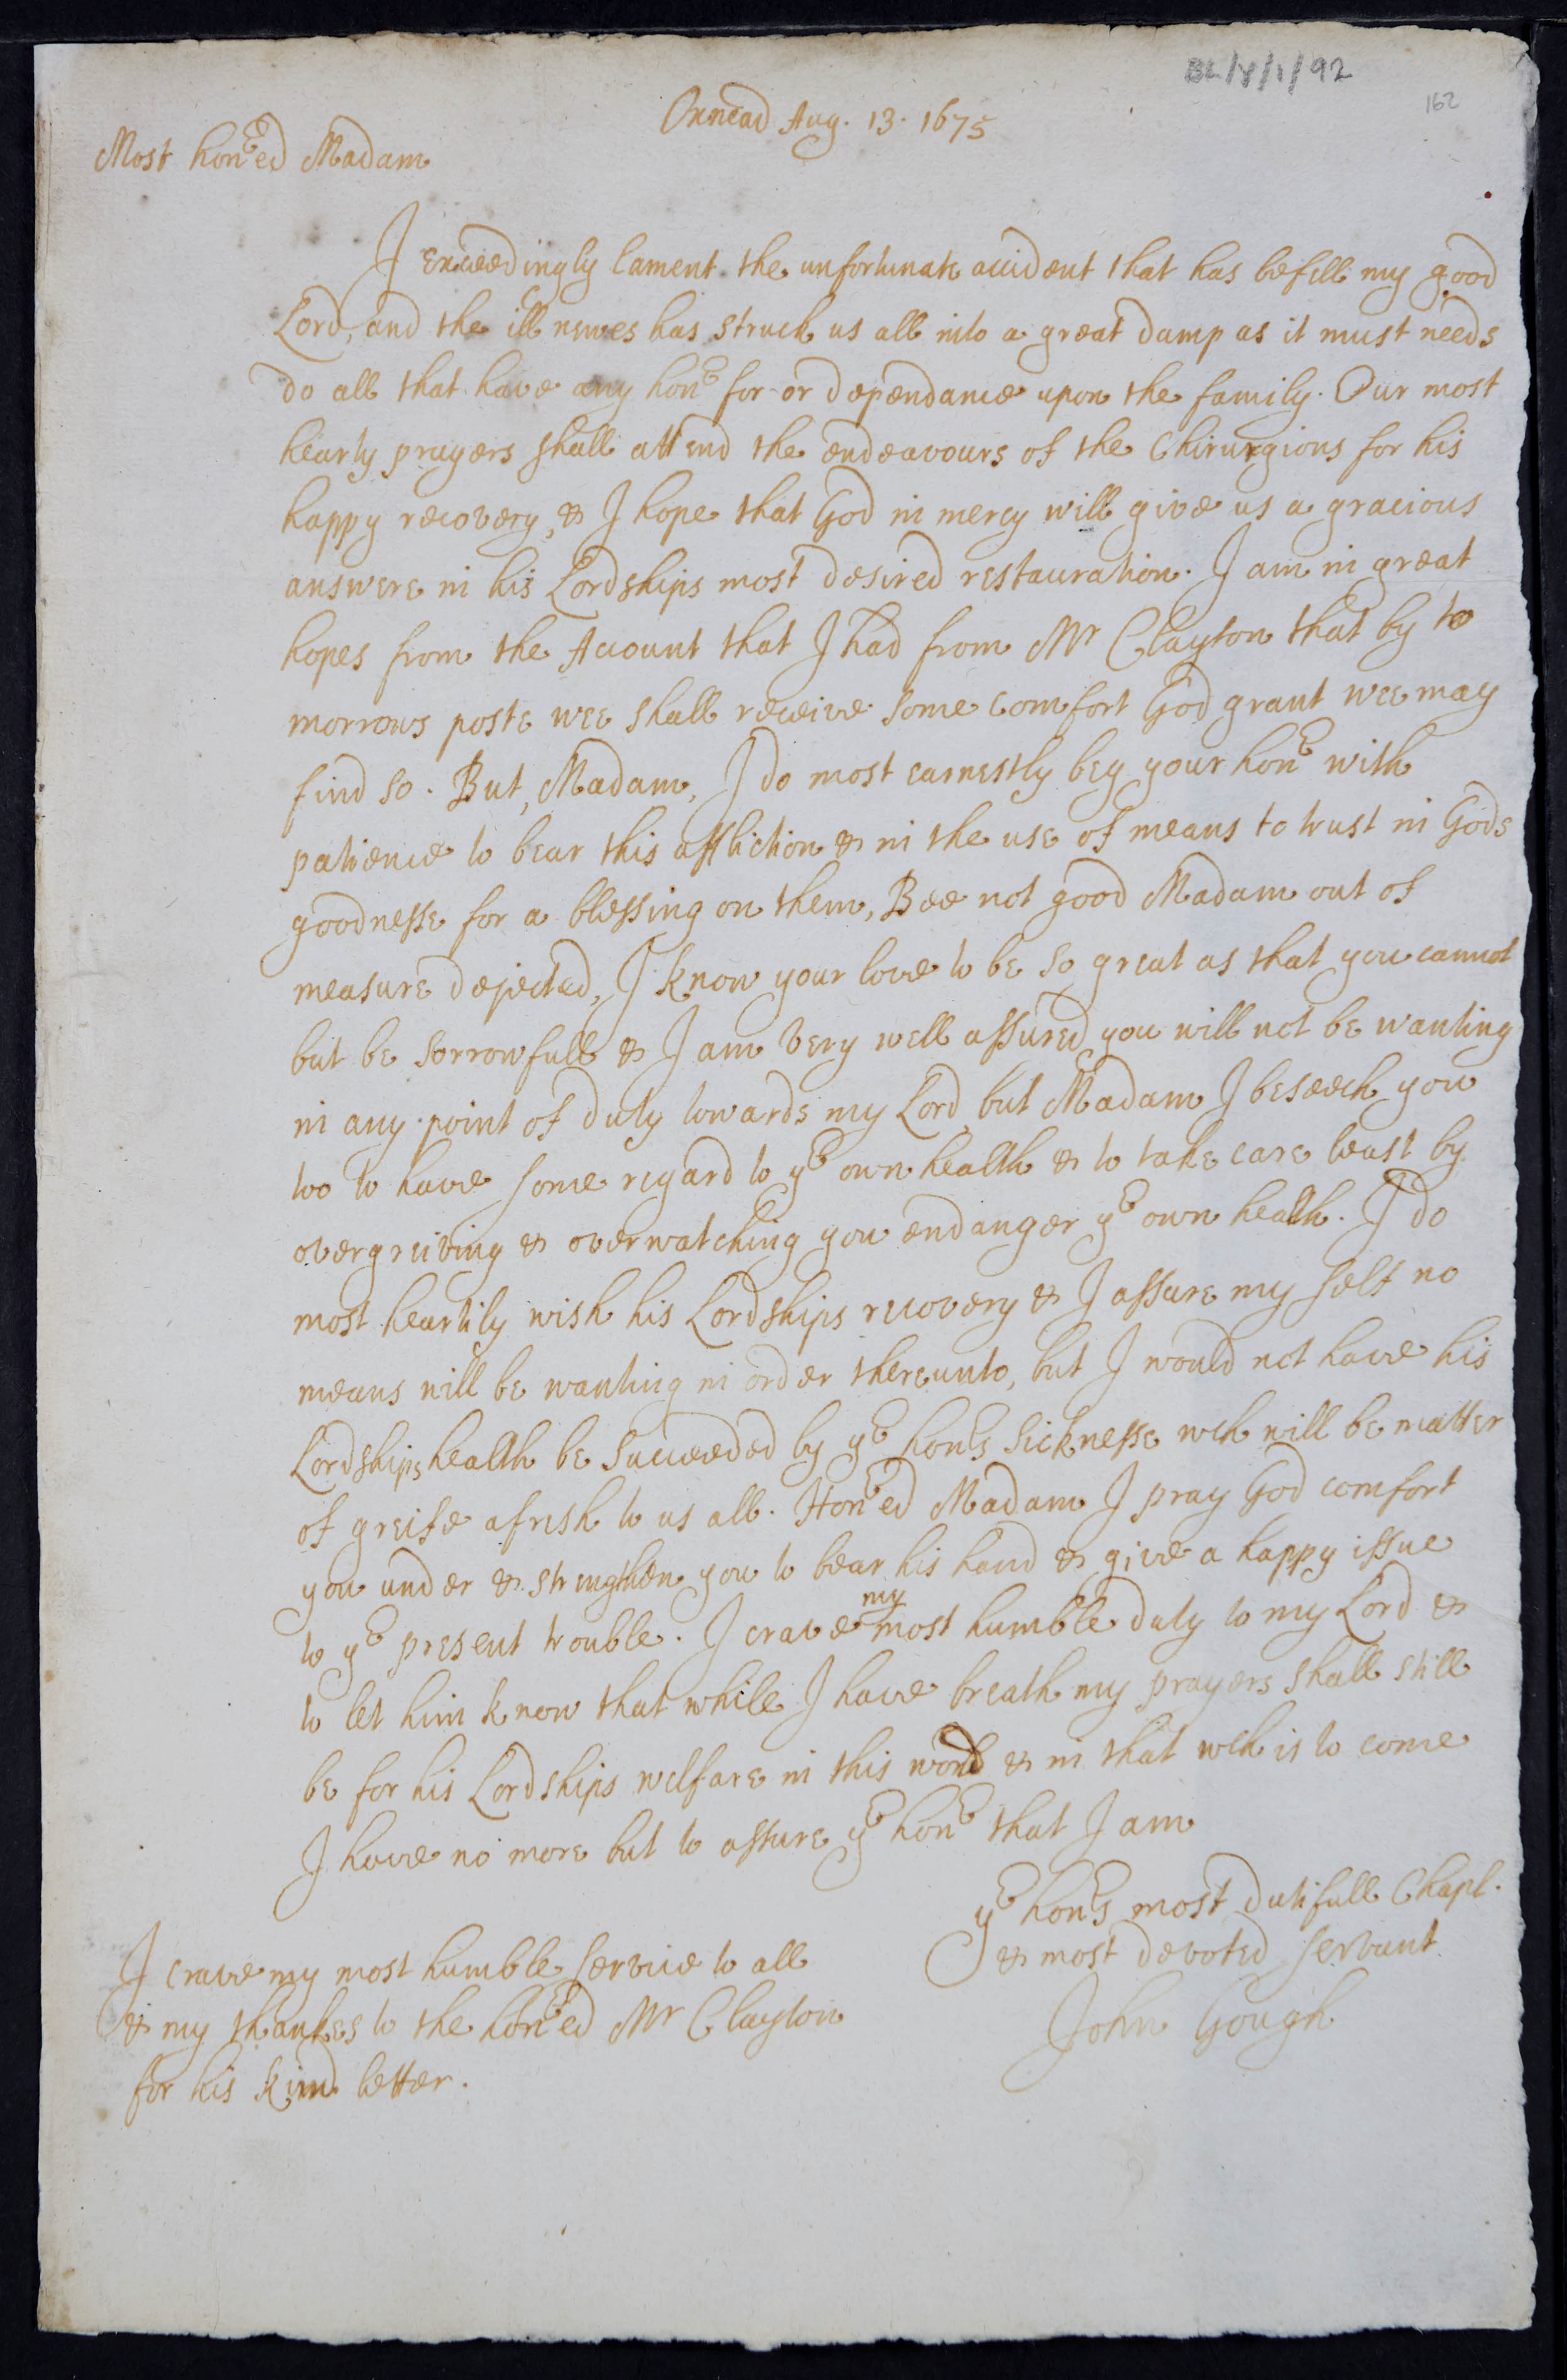 BL/Y/1/92
162
Oxnead Aug. 13. 1675
Most hon^r ed Madam
I exceedingly lament the unfortunate accident that has befell my good
Lord, and the ill newes has struck us all into a great damp as it must needs
do all that have any hon^r for or dependance upon the family. Our most
hearty prayers shall attend the endeavours of the Chirurgions for his
happy recovery, & I hope that God in mercy will give us a gracious
answere in his Lordships most desired restauration. I am in great
hopes from the Account that I had from Mr Clayton that by to
morrows poste wee shall receive some comfort God grant wee may
find so. But, Madam, I do most earnestly beg your hon^r with
patience to bear this affliction & in the use of means to trust in Gods
goodnesse for a blessing on them, Bee not good Madam out of
measure dejected, I know your love to be so great as that you cannot
but be sorrowfull & I am very well assured you will not be wanting
in any point of duty towards my Lord, but Madam I beseech you
too to have some regard to y^r own health & to take care least by
overgreiving & overwatching you endanger y^r own health. I do
most heartily wish his Lordships recovery & I assure my self no
means will be wanting in order thereunto, but I would not have his
Lordships health be succeeded by y^r hon^rs sicknesse wch will be matter
of greife afresh to us all. Hon^r ed Madam I pray God comfort
you under & strengthen you to bear his hand & give a happy issue
to y^r present trouble. I crave my most humble duty to my Lord &
to let him know that while I have breath my prayers shall still
be for his Lordships welfare in this world & in that wch is to come
I have no more but to assure y^r hon^r that I am
y^r hon^rs most dutifull Chapl.
& most devoted servant
John Gough
I crave my most humble service to all
& my thankes to the hon^r ed Mr Clayton
for his kind letter.